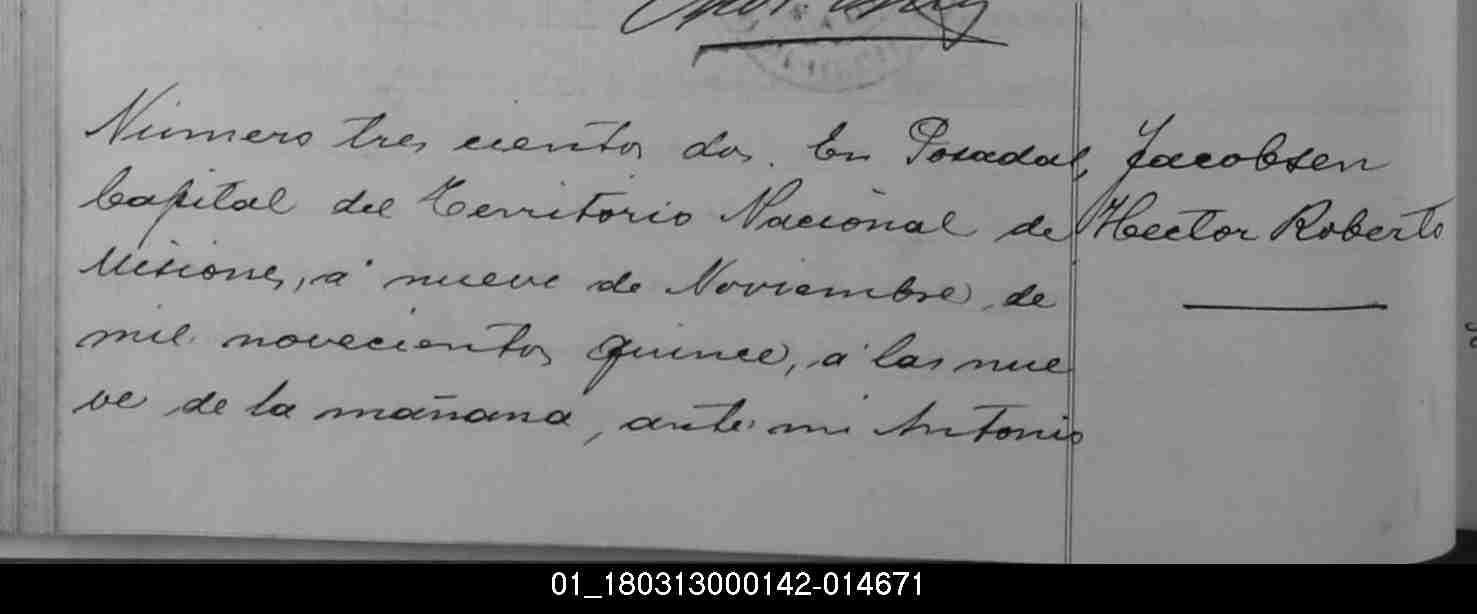 Número tres cientos dos. En Posadas,
Capital del Territorio Nacional de
Misiones, á nueve de Noviembre, de
mil novecientos quince, á las nue
ve de la mañana, ante mi Antonio
Jacobsen
Hector Roberto
01_180313000142-014671